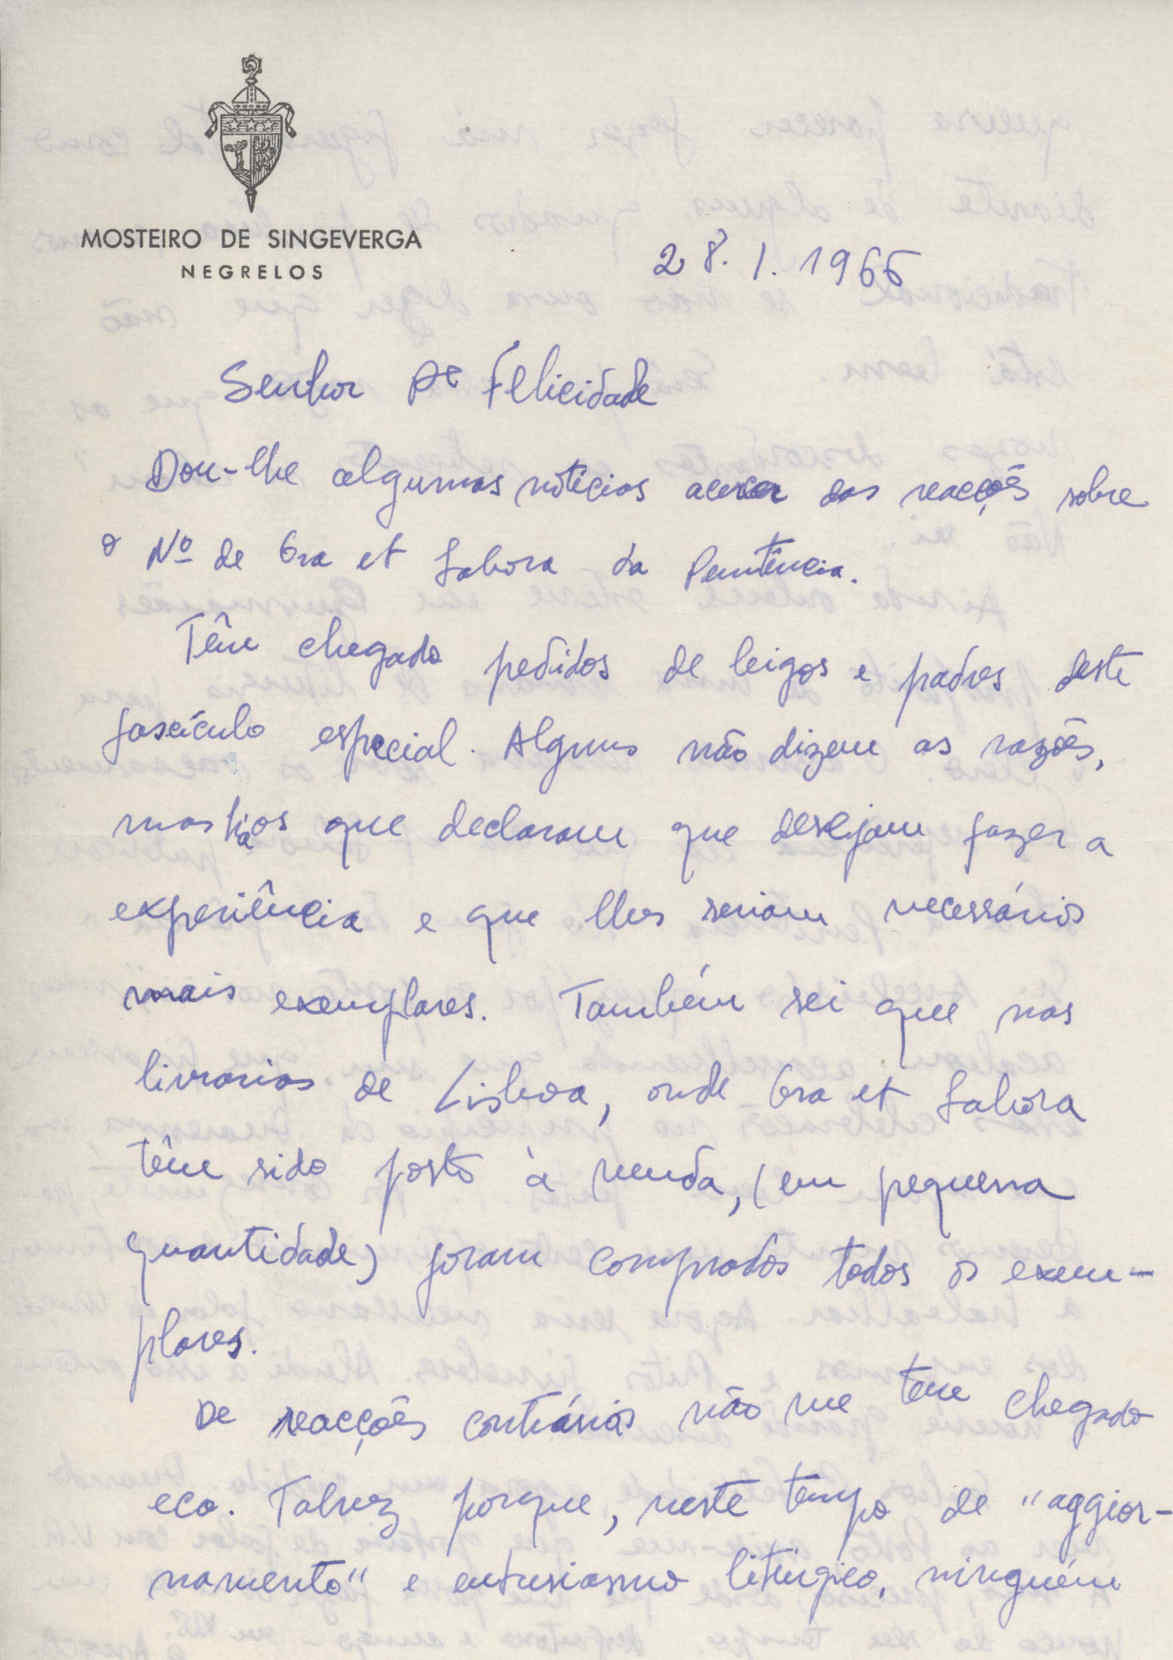 MOSTEIRO DE SINGEVERGA
NEGRELOS
28.1.1966
Senhor Pe Felicidade
Dou-lhe algumas notícias acerca das reacções sobre
o Nº de Ora et Labora da Penitência.
Têm chegado pedidos de leigos e padres deste
fascículo especial. Alguns não dizem as razões,
mas há os que declaram que desejam fazer a
experiência e que lhes seriam necessários
mais exemplares. Também sei que nas
livrarias de Lisboa, onde Ora et Labora
têm sido posto à venda, (em pequena
quantidade) foram comprados todos os exem-
plares.
De reacções contrárias não me tem chegado
eco. Talvez porque, neste tempo de "aggior-
namento" e entusiasmo litúrgico, ninguém